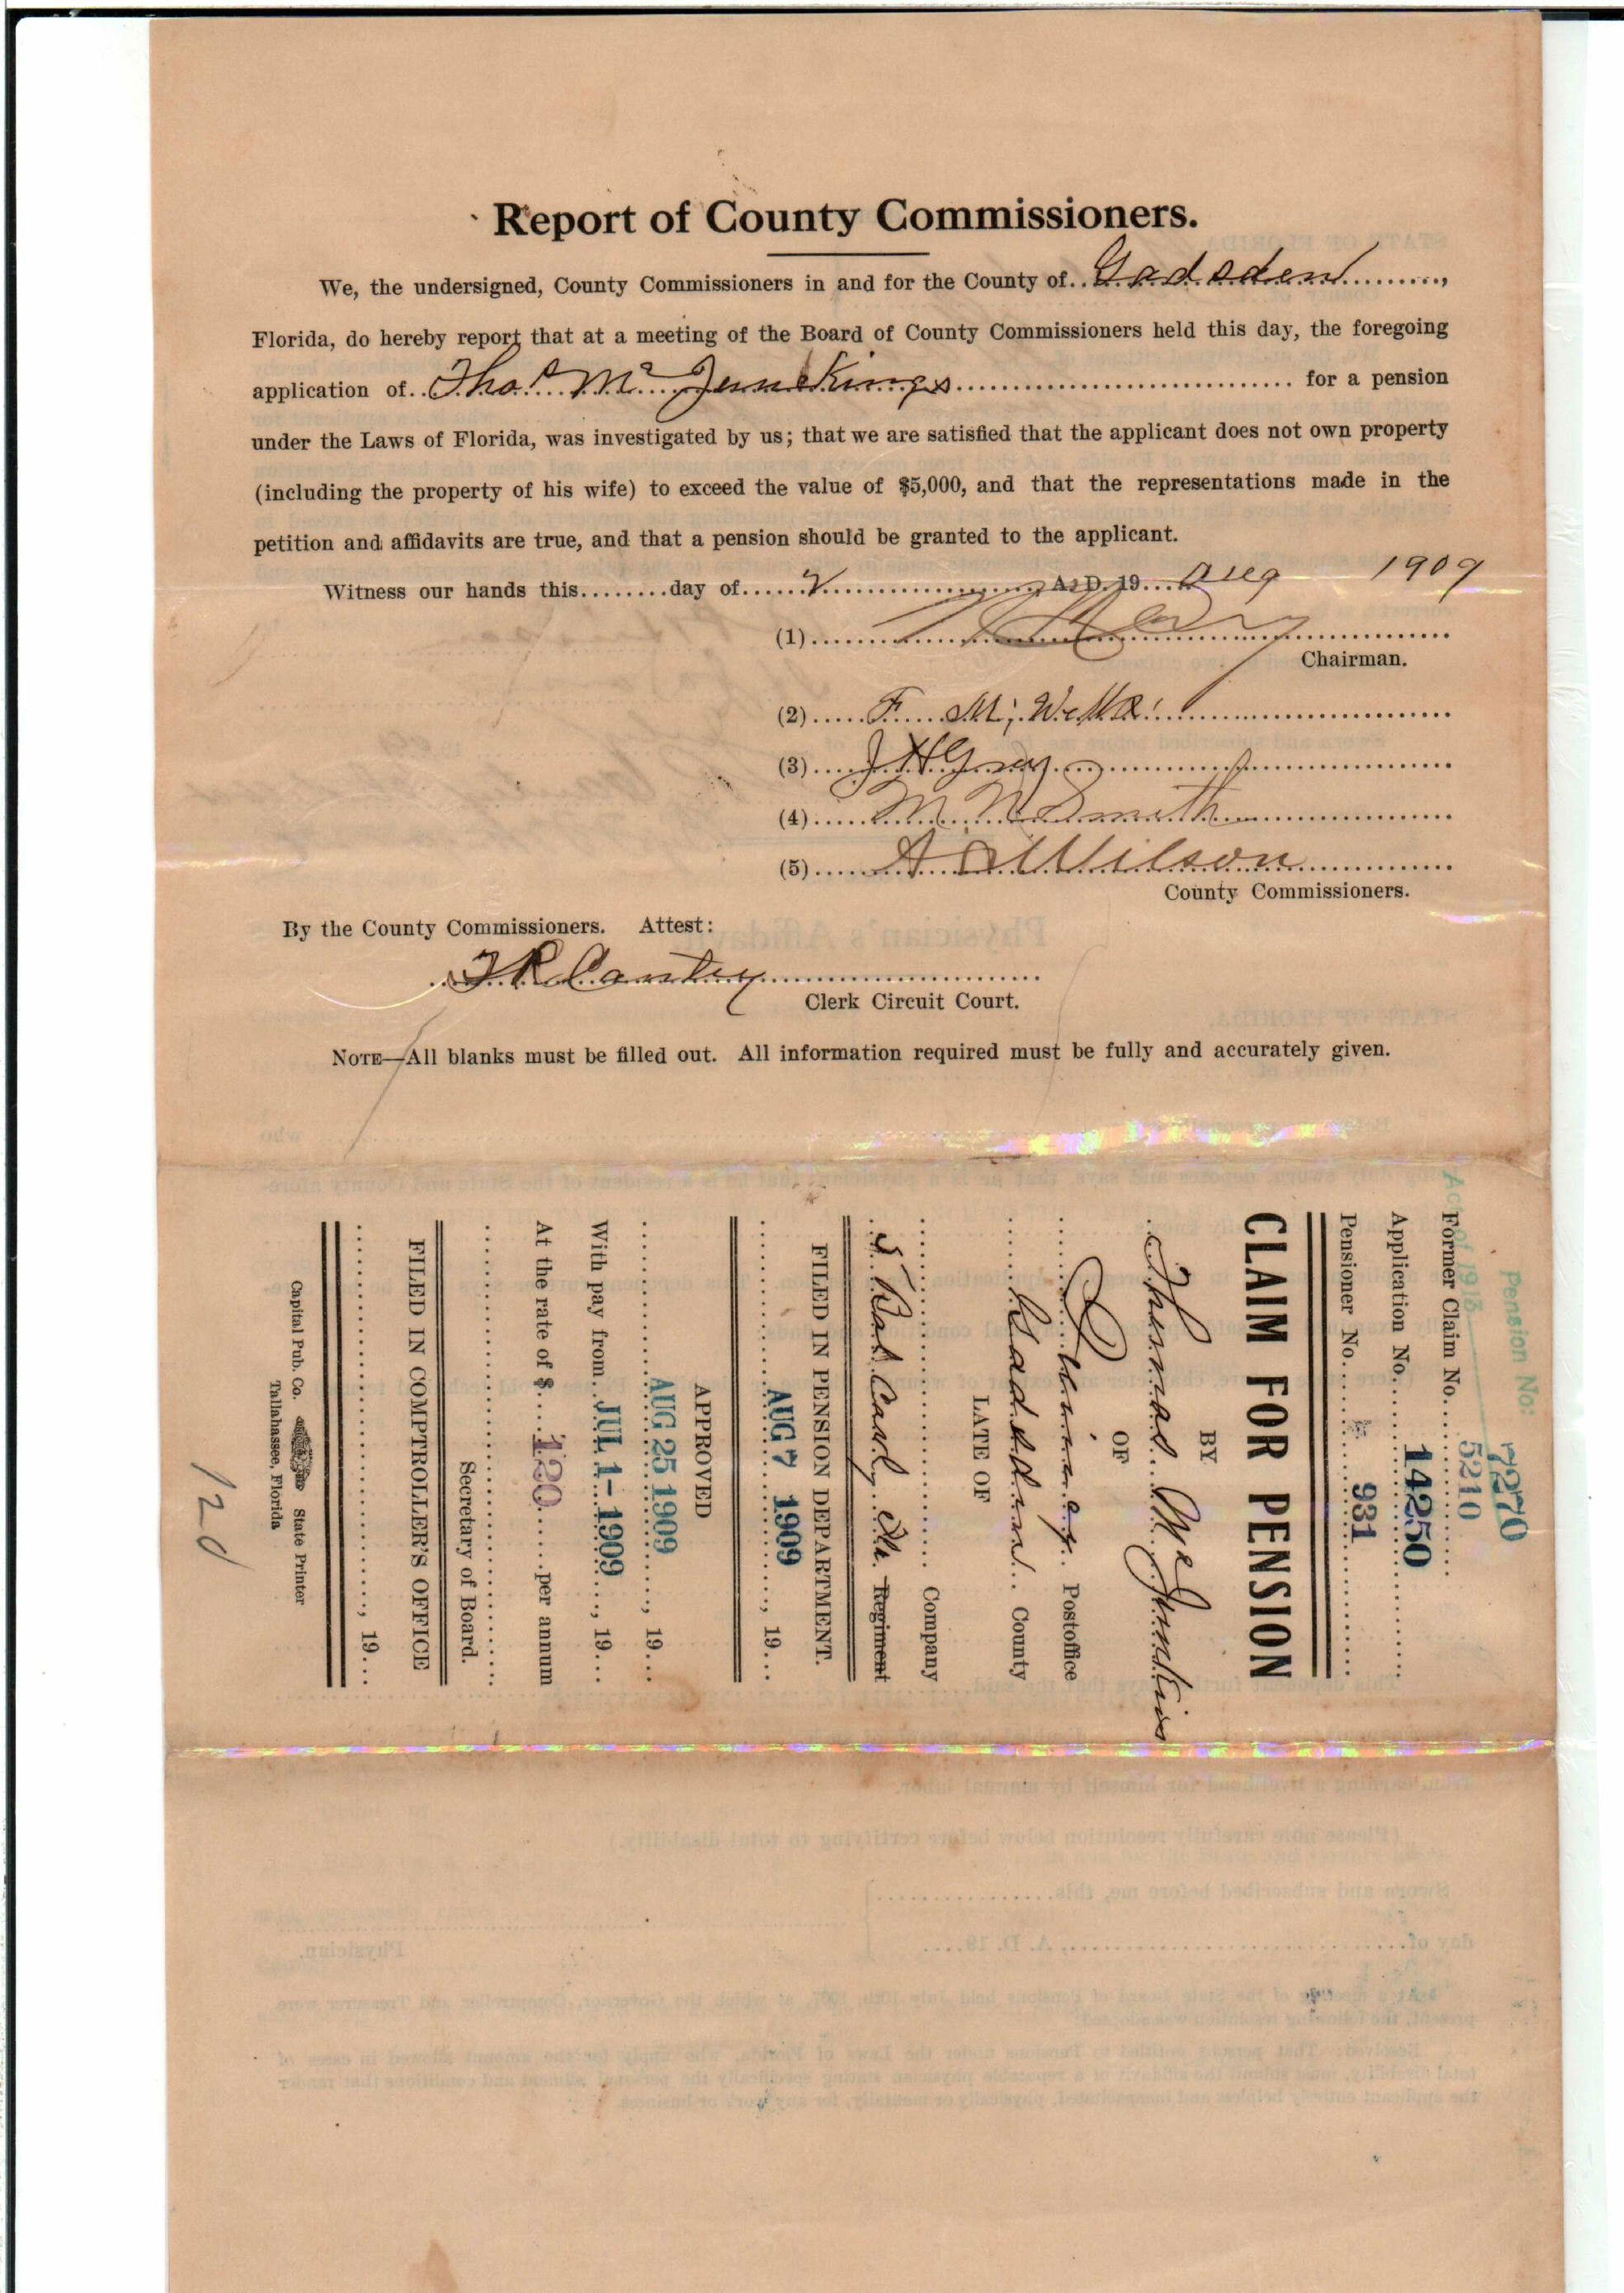 Report of County Commissioners.
We, the undersigned, County Commissioners in and for the County of Gadsden,
Florida, do hereby report that at a meeting of the Board of County Commissioners held this day, the foregoing
application of Thos Mc Junkings for a pension
under the Laws of Florida, was investigated by us; that we are satisfied that the applicant does not own property
(including the property of his wife) to exceed the value of $5,000, and that the representations made in the
petition and affidavits are true, and that a pension should be granted to the applicant.
Witness our hands this........day of 2 A. D. 19 Aug 1909
(1)
Chairman.
(2) F. M.
(3) J H Gray
(4) M N Smith
(5) A D Wilson
County Commissioners.
By the County Commissioners. Attest:
Clerk Circuit Court.
NOTE—All blanks must be filled out. All information required must be fully and accurately given.
Pension No: 7270
Act of 1913 5210
Former Claim No.
Application No. 14250
Pensioner No. 931
CLAIM FOR PENSION
BY
Thomas McJunkin
OF
Quincy Postoffice
Gadsden County
LATE OF
Company
5' Bat. Cavly Fla. Regiment
FILED IN PENSION DEPARTMENT.
AUG 7 1909, 19...
APPROVED
AUG 25 1909, 19...
With pay from JUL 1-1909, 19...
At the rate of $ 120 per annum
Secretary of Board.
FILED IN COMPTROLLER'S OFFICE
, 19...
Capital Pub. Co. State Printer
Tallahassee, Florida
120